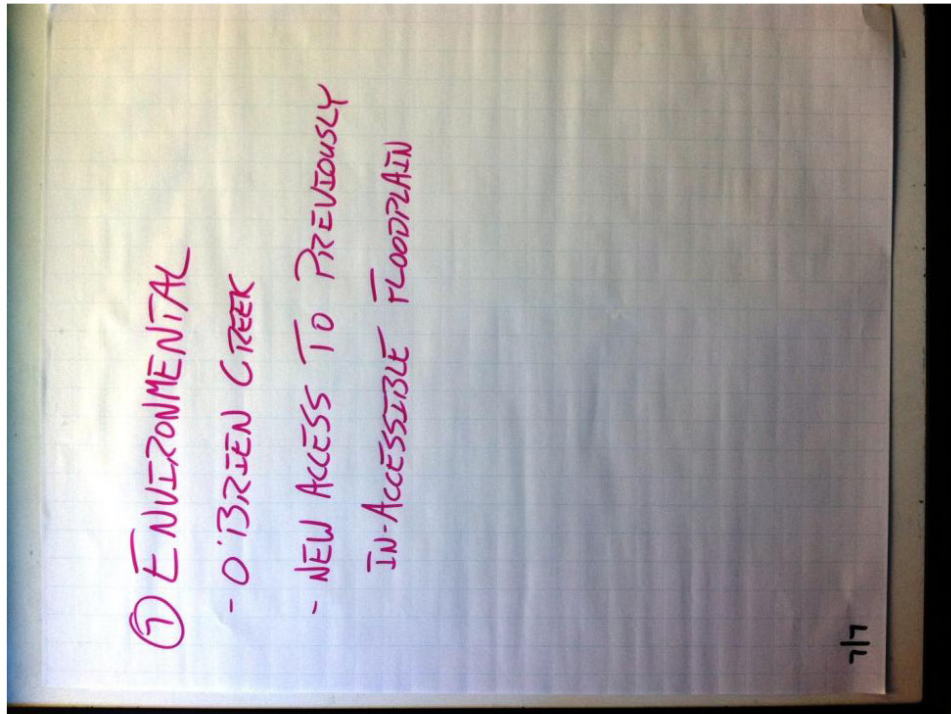 ⑦ ENVIRONMENTAL
- O'BRIEN CREEK
- NEW ACCESS TO PREVIOUSLY
IN-ACCESSIBLE FLOODPLAIN
7/7